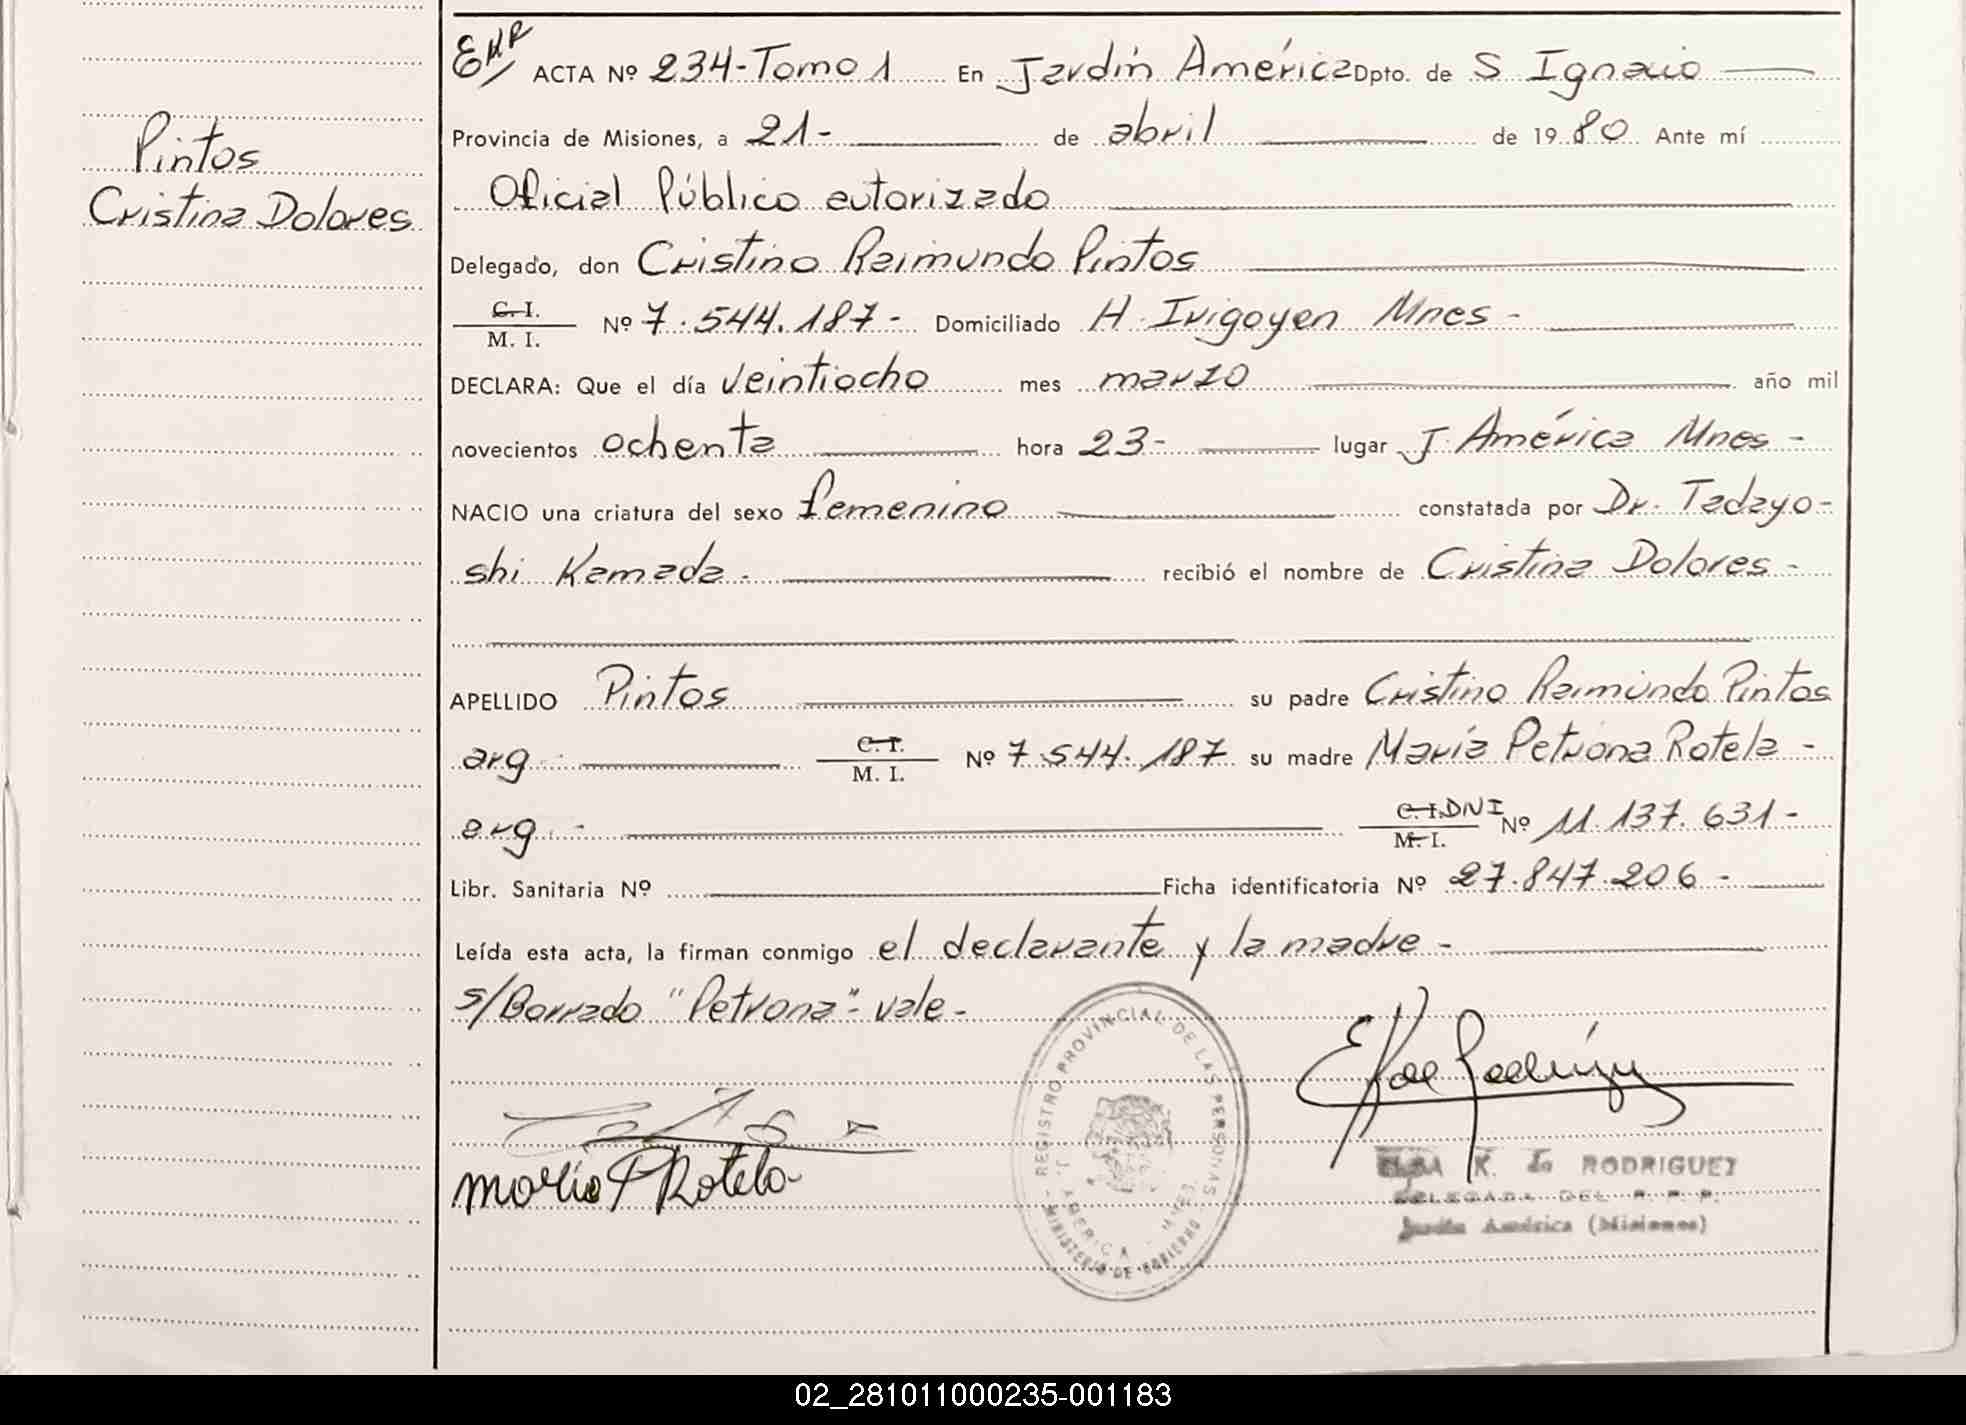 Pintos
Cristina Dolores
ACTA Nº 234-Tomo 1 En Jardín América Dpto. de S Ignacio
Provincia de Misiones, a 21- de abril de 1980 Ante mí
Oficial Público autorizado
Delegado, don Cristino Raimundo Pintos
C. I.
M. I. Nº 7.544.187- Domiciliado H. Irigoyen Mnes-
DECLARA: Que el día veintiocho mes marzo año mil
novecientos ochenta hora 23- lugar J. América Mnes-
NACIO una criatura del sexo femenino constatada por Dr. Tadayo-
shi Kamada. recibió el nombre de Cristina Dolores-
APELLIDO Pintos su padre Cristino Raimundo Pintos
arg- C. I. M. I. Nº 7.544.187 su madre María Petrona Rotela-
arg.- C. I. DNI M. I. Nº 11.137.631-
Libr. Sanitaria Nº Ficha identificatoria Nº 27.847.206-
Leída esta acta, la firman conmigo el declarante y la madre-
s/Borrado "Petrona"- vale-
REGISTRO PROVINCIAL DE LAS PERSONAS
J. AMERICA - MNES.
MINISTERIO DE GOBIERNO
maria P Rotela
ELBA K. de RODRIGUEZ
DELEGADA DEL R. P. P.
Jardín América (Misiones)
02_281011000235-001183